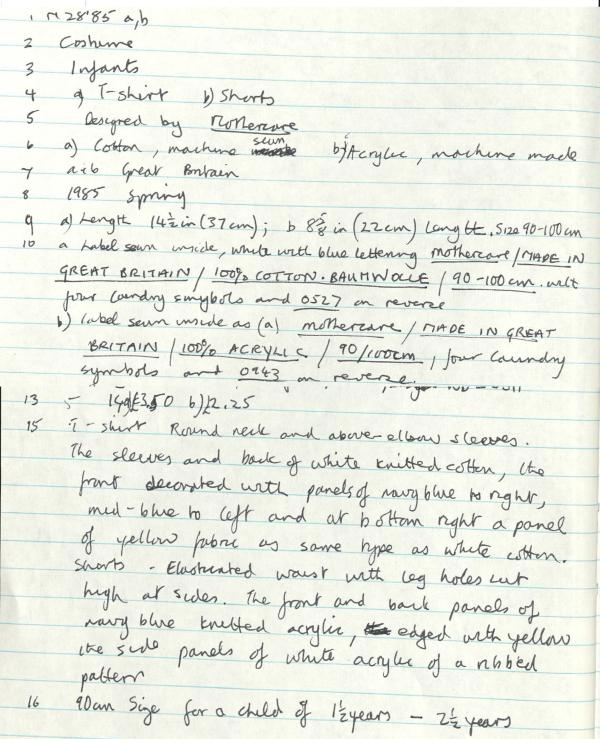 1 N28'85 a,b
2 Costume
3 Infants
4 a) T-shirt b) Shorts
5 Designed by Mothercare
6 a) Cotton, machine sewn b) Acrylic, machine made
7 a+b Great Britain
8 1985 Spring
9 a) Length 14½ in (37cm); b 8⅝ in (22cm) Length. Size 90-100cm
10 a Label sewn inside, white with blue lettering mothercare/MADE IN
GREAT BRITAIN/100% COTTON.BAUMWOLLE/90-100cm. with
four laundry smybols and 0527 on reverse
b) label sewn inside as (a) mothercare/MADE IN GREAT
BRITAIN/100% ACRYLIC/90/100cm, four laundry
symbols and 0943 on reverse.
13 a) £3.50 b) £2.25
15 T-shirt Round neck and above-elbow sleeves.
The sleeves and back of white knitted cotton, the
front decorated with panels of navy blue to right,
mid-blue to left and at bottom right a panel
of yellow fabric as same type as white cotton.
Shorts - Elasticated waist with leg holes cut
high at sides. The front and back panels of
navy blue knitted acrylic, edged with yellow
the side panels of white acrylic of a ribbed
pattern
16 90cm Size for a child of 1½ years - 2½ years